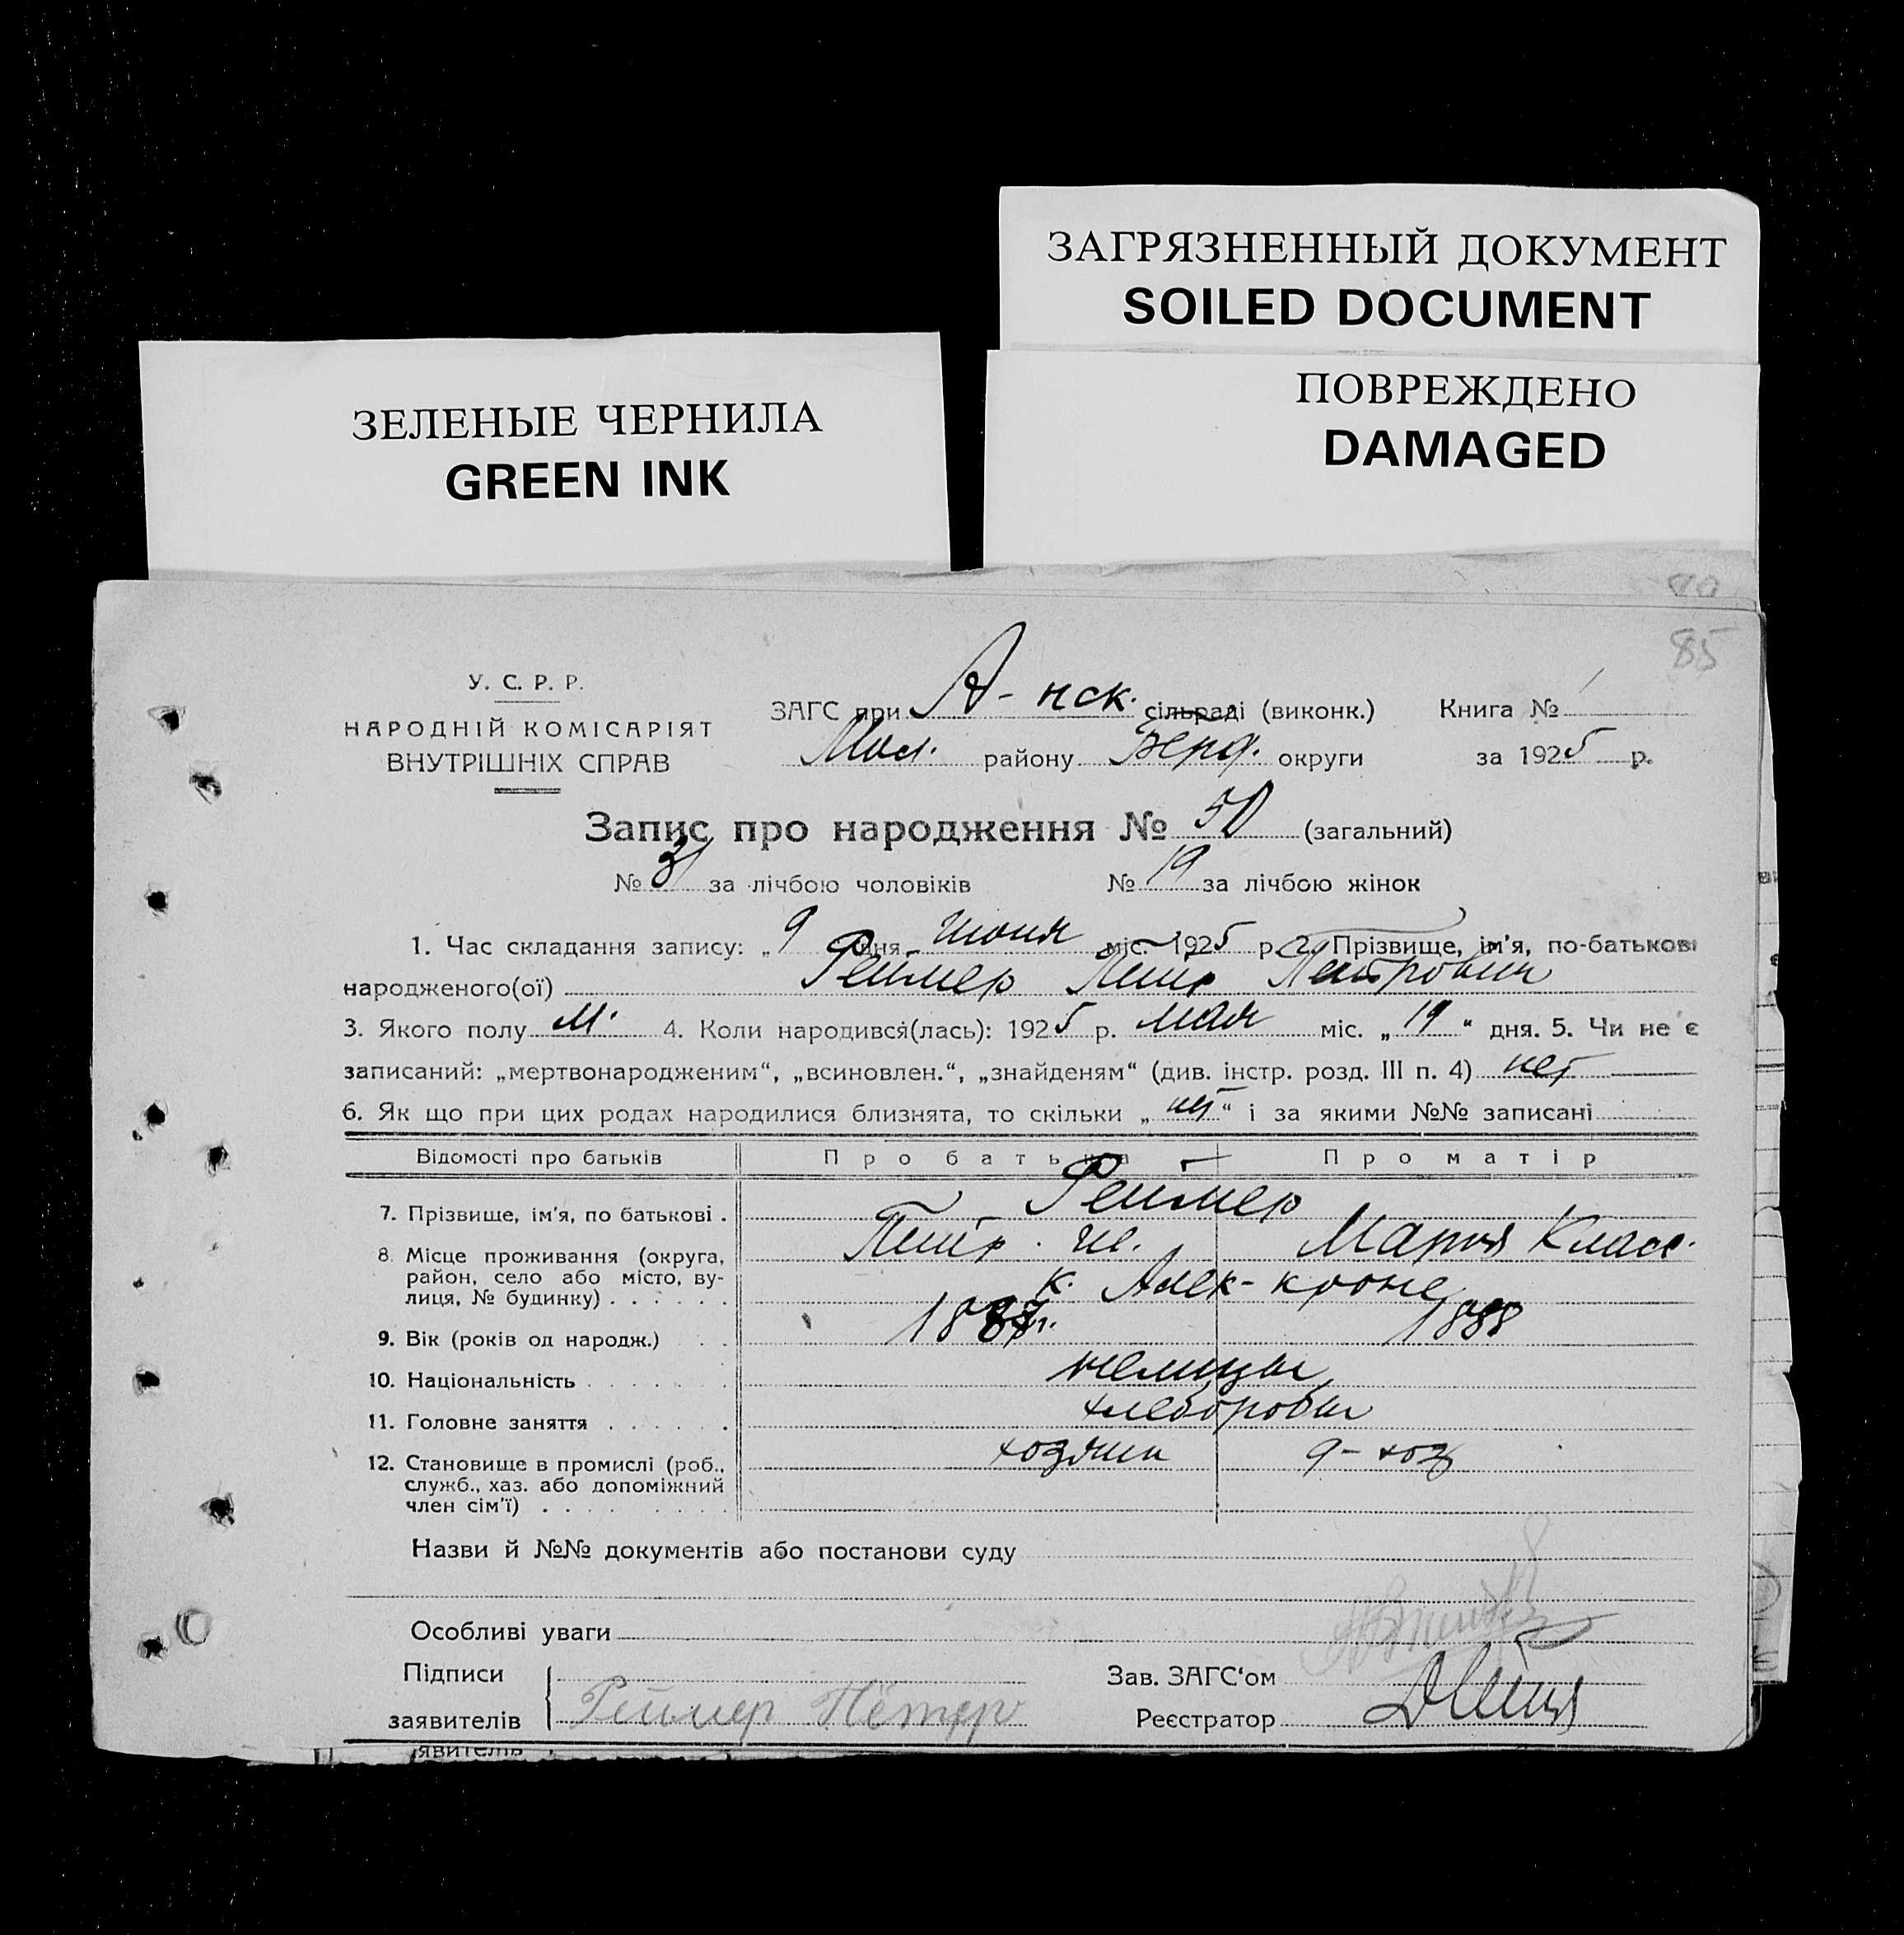 ЗАГРЯЗНЕННЫЙ ДОКУМЕНТ
SOILED DOCUMENT
ПОВРЕЖДЕНО
DAMAGED
ЗЕЛЕНЫЕ ЧЕРНИЛА
GREEN INK
85
У. С. Р. Р.
НАРОДНІЙ КОМІСАРІЯТ
ВНУТРІШНІХ СПРАВ
ЗАГС при А-нск. сільраді (виконк.) Книга №
Мол. району Берд. округи за 1925 р.
Запис про народження № 50 (загальний)
№ 31 за лічбою чоловіків № 19 за лічбою жінок
1. Час складання запису: „9 дня июня міс. 1925 р. 2. Прізвище, ім'я, по-батькові
народженого(ої) Реймер Петр Петрович
3. Якого полу м. 4. Коли народився(лась): 1925 р. мая міс. „19“ дня. 5. Чи не є
записаний: „мертвонародженим“, „всиновлен.“, „знайденям“ (див. інстр. розд. III п. 4) нет
6. Як що при цих родах народилися близнята, то скільки „нет“ і за якими №№ записані
Відомості про батьків Про батька Про матір
7. Прізвище, ім'я, по батькові . Реймер
Петр. Марья Класс.
8. Місце проживання (округа,
район, село або місто, ву-
лиця, № будинку) . . . . . . к. Алек-кроне
9. Вік (років од народж.) . . 1887г. 1888
10. Національність . . . . . . немцы
11. Головне заняття . . . . . . хлеборобы
12. Становище в промислі (роб.,
служб., хаз. або допоміжний
член сім'ї) . . . . . . хозяин
Назви й №№ документів або постанови суду
Особливі уваги
Підписи
заявителів Реймер Пётер
Зав. ЗАГС‘ом
Реєстратор
явителів